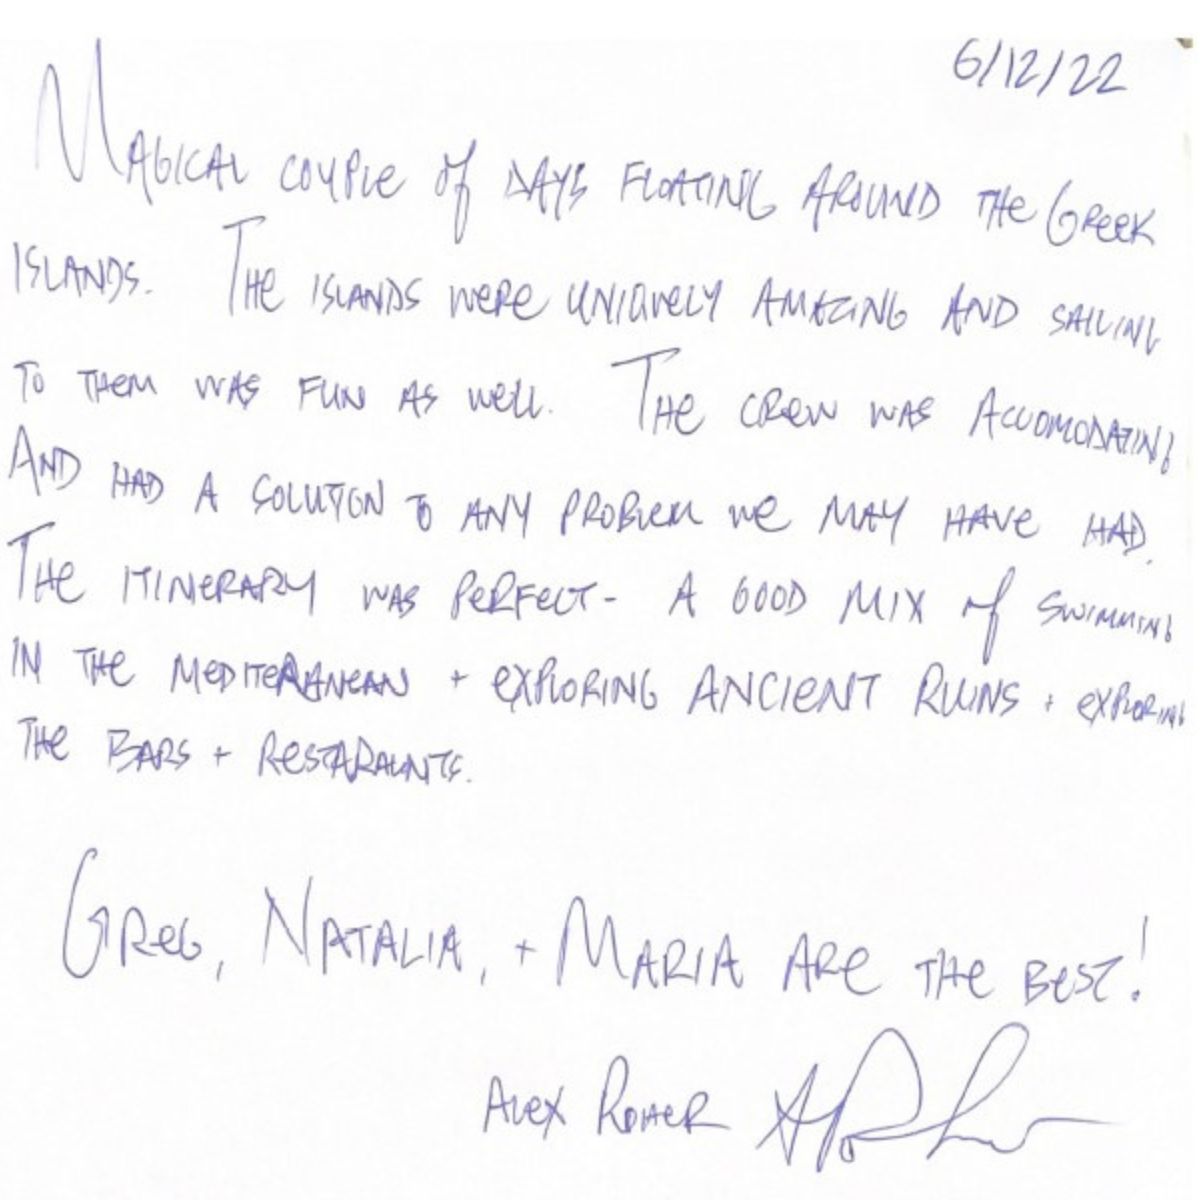 6/12/22
MAGICAL COUPLE of DAYS FLOATING AROUND THE GREEK
ISLANDS. THE ISLANDS WERE UNIQUELY AMAZING AND SAILING
TO THEM WAS FUN AS WELL. THE CREW WAS ACCOMODATING
AND HAD A SOLUTION TO ANY PROBLEM WE MAY HAVE HAD.
THE ITINERARY WAS PERFECT - A GOOD MIX of SWIMMING
IN THE MEDITERANEAN + EXPLORING ANCIENT RUINS + EXPLORING
THE BARS + RESTARAUNTS.
GREG, NATALIA, + MARIA ARE THE BEST!
ALEX